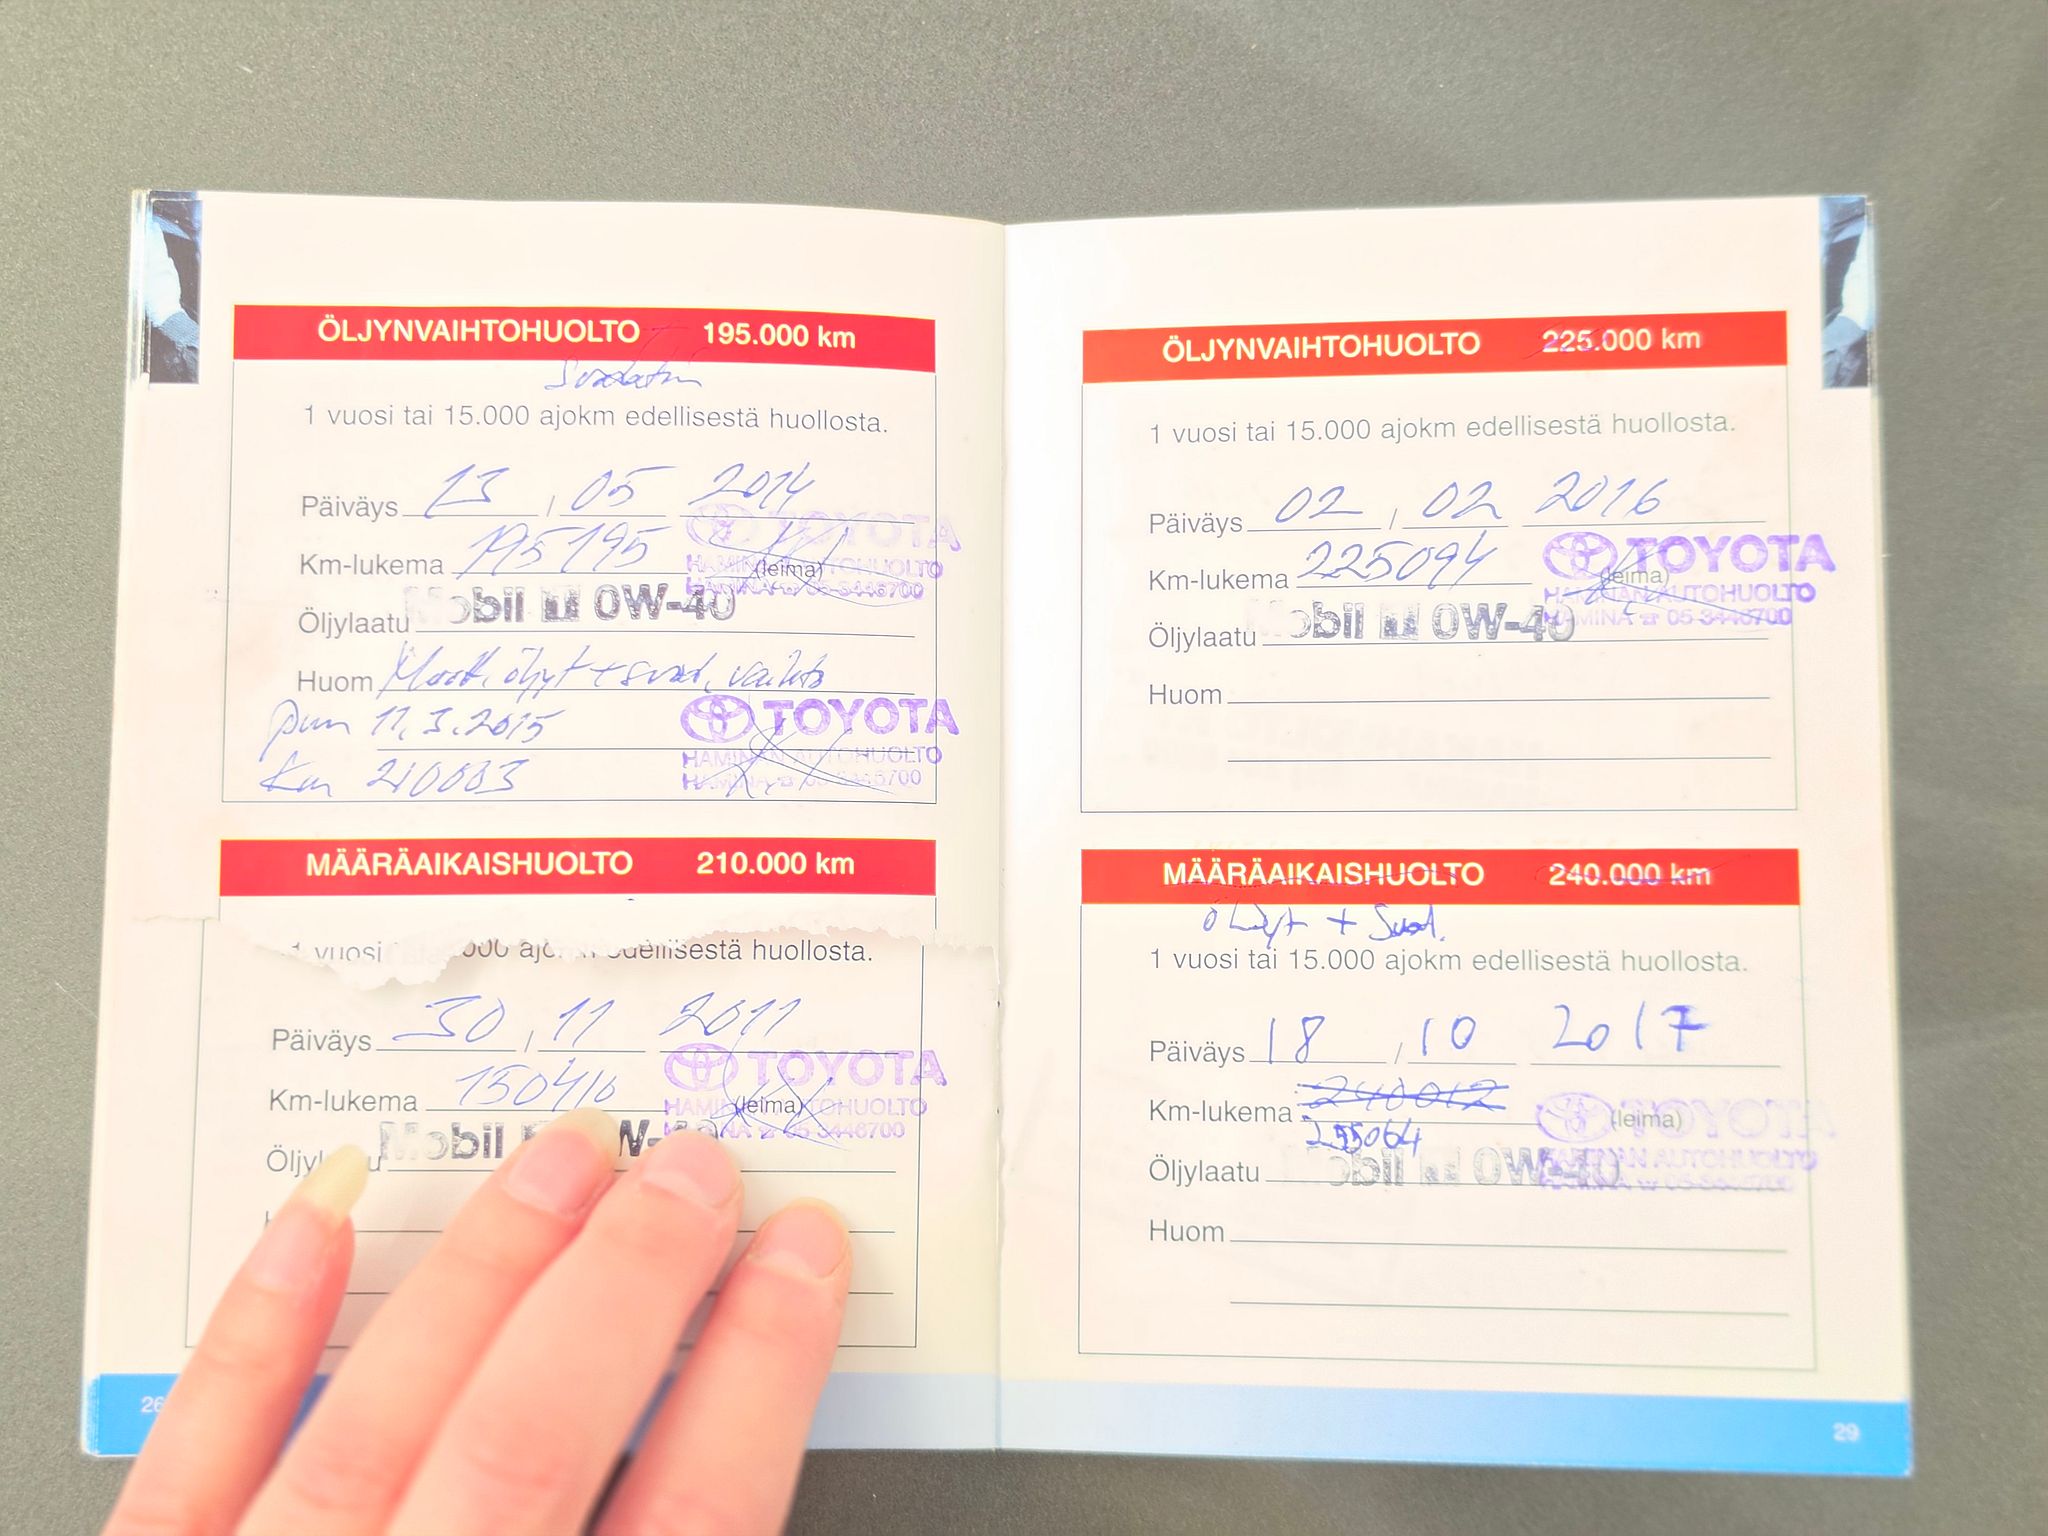 ÖLJYNVAIHTOHUOLTO 195.000 km
1 vuosi tai 15.000 ajokm edellisestä huollosta.
Päiväys 13 / 05 2014
TOYOTA
Km-lukema 195195
(leima)
HAMINAN AUTOHUOLTO
HAMINA ☎ 05-3446700
Öljylaatu Mobil 1 0W-40
Huom Moott. öljyt + suod. vaihto
pvm 11.3.2015
TOYOTA
HAMINAN AUTOHUOLTO
Km 210003
HAMINA ☎ 05-3446700
MÄÄRÄAIKAISHUOLTO 210.000 km
1 vuosi 000 ajokm edellisestä huollosta.
Päiväys 30 , 11 2011
TOYOTA
Km-lukema 150410
(leima)
HAMINAN AUTOHUOLTO
HAMINA 05 3446700
Mobil W-40
26
ÖLJYNVAIHTOHUOLTO 225.000 km
1 vuosi tai 15.000 ajokm edellisestä huollosta.
Päiväys 02 / 02 2016
TOYOTA
Km-lukema 225094
(leima)
HAMINAN AUTOHUOLTO
HAMINA ☎ 05 3446700
Öljylaatu Mobil 1 0W-40
Huom
MÄÄRÄAIKAISHUOLTO 240.000 km
öljyt + Suod.
1 vuosi tai 15.000 ajokm edellisestä huollosta.
Päiväys 18 / 10 2017
TOYOTA
Km-lukema 240012
(leima)
255064
HAMINAN AUTOHUOLTO
HAMINA ☎ 05-3446700
Öljylaatu Mobil 1 0W-40
Huom
29